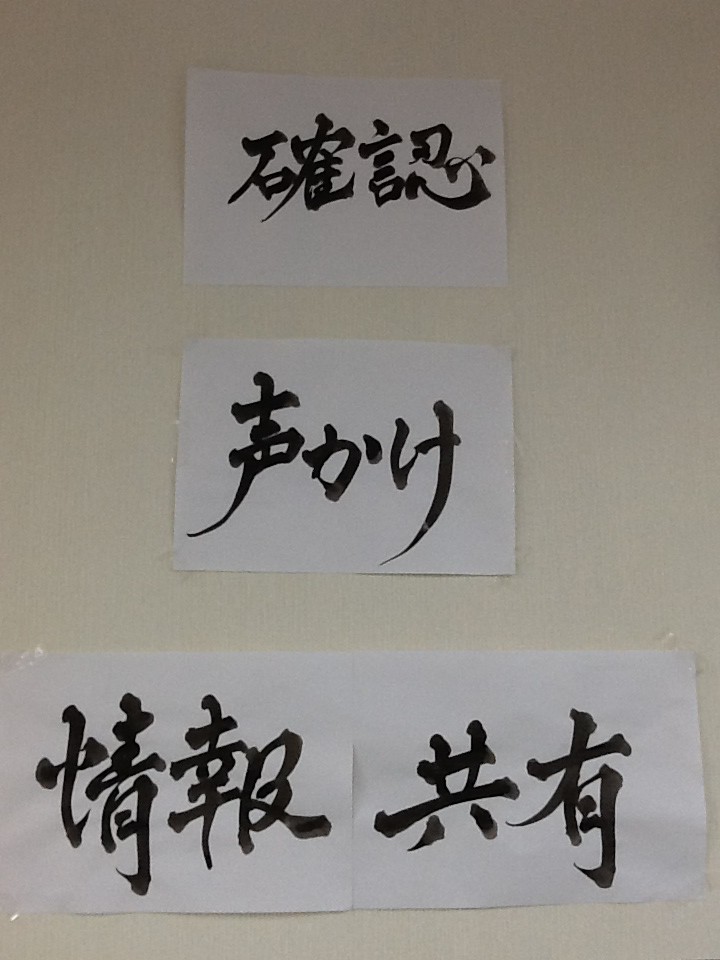 確認
声かけ
情報共有